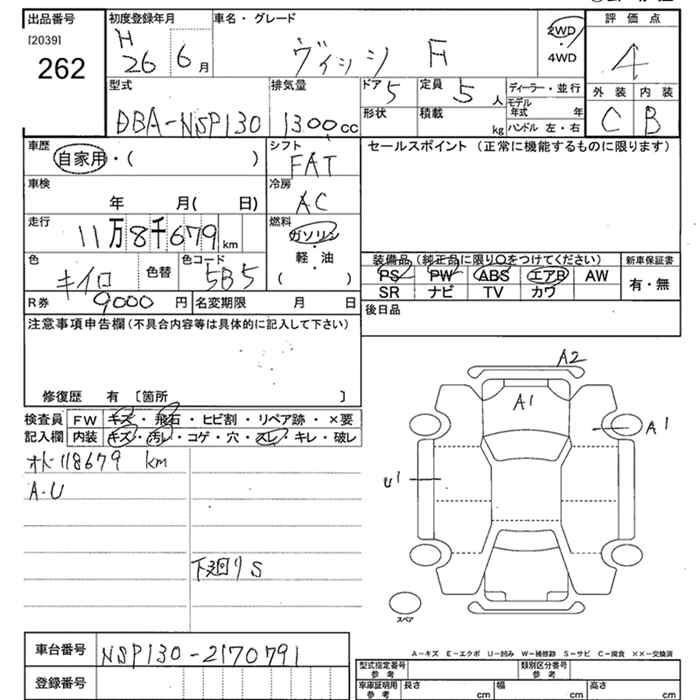 出品番号 初度登録年月 車名・グレード 2WD・4WD 評価点
[2039]
262
H 26 6月 F 4
型式 排気量 ドア 5 定員 5人 ディーラー・並行 外装 内装
モデル年式 年
DBA-NSP130 1300cc 形状 積載 kg ハンドル 左・右 C B
車歴 シフト セールスポイント (正常に機能するものに限ります)
自家用・( ) FAT
車検 冷房
年 月( 日) AC
走行 燃料
11万8千679km ガソリン
軽・油
( )
色 色替 色コード
キイロ 5B5
装備品 (純正品に限り○をつけてください) 新車保証書
PS PW ABS エアB AW 有・無
SR ナビ TV カワ
R券 9000円 名変期限 月 日
後日品
注意事項申告欄(不具合内容等は具体的に記入して下さい)
修復歴 有 [箇所 ]
検査員 FW キズ・飛石・ヒビ割・リペア跡・×要
記入欄 内装 キズ・汚レ・コゲ・穴・スレ・キレ・破レ
118679 km
A・U
下廻りS
A2
A1
A1
U1
スペア
車台番号 NSP130-2170791
登録番号
A-キズ E-エクボ U-凹み W-補修跡 S-サビ C-腐食 ××-交換済
型式指定番号 参考 類別区分番号 参考
車庫証明用 参考 長さ cm 幅 cm 高さ cm